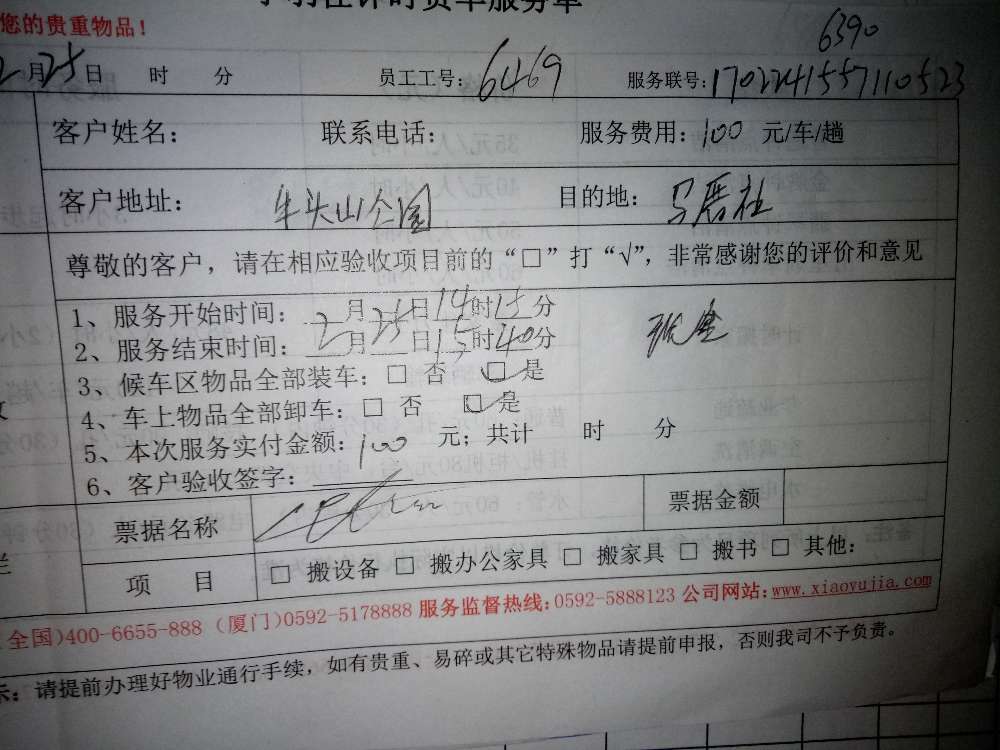 计时货车服务单
您的贵重物品！
6390
2月25日 时 分 员工工号：6469 服务联号：1702241557110523
客户姓名： 联系电话： 服务费用：100 元/车/趟
客户地址：牛头山公园 目的地：马厝社
尊敬的客户，请在相应验收项目前的“□”打“√”，非常感谢您的评价和意见
1、服务开始时间：2月25日14时15分
2、服务结束时间：2月25日15时40分
3、候车区物品全部装车：□ 否 ☑ 是
4、车上物品全部卸车：□ 否 ☑ 是
5、本次服务实付金额：100 元；共计 时 分
6、客户验收签字：
票据名称 票据金额
项 目 □ 搬设备 □ 搬办公家具 □ 搬家具 □ 搬书 □ 其他：
全国)400-6655-888 (厦门)0592-5178888 服务监督热线：0592-5888123 公司网站：www.xiaoyujia.com
示：请提前办理好物业通行手续，如有贵重、易碎或其它特殊物品请提前申报，否则我司不予负责。